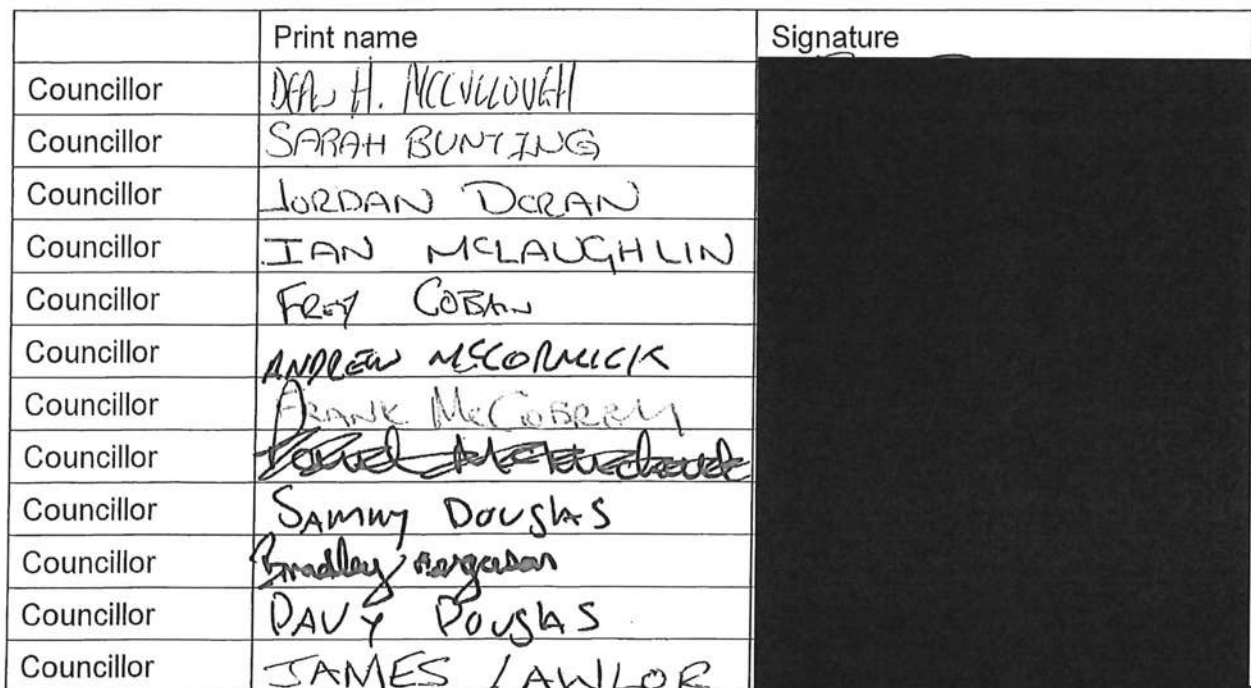 Print name Signature
Councillor DEAN H. MCCULLOUGH
Councillor SARAH BUNTING
Councillor JORDAN DORAN
Councillor IAN MCLAUGHLIN
Councillor FRED COBAIN
Councillor ANDREW MCCORMICK
Councillor FRANK McCOBREY
Councillor
Councillor SAMMY DOUGLAS
Councillor Bradley Ferguson
Councillor DAVY DOUGLAS
Councillor JAMES LAWLOR